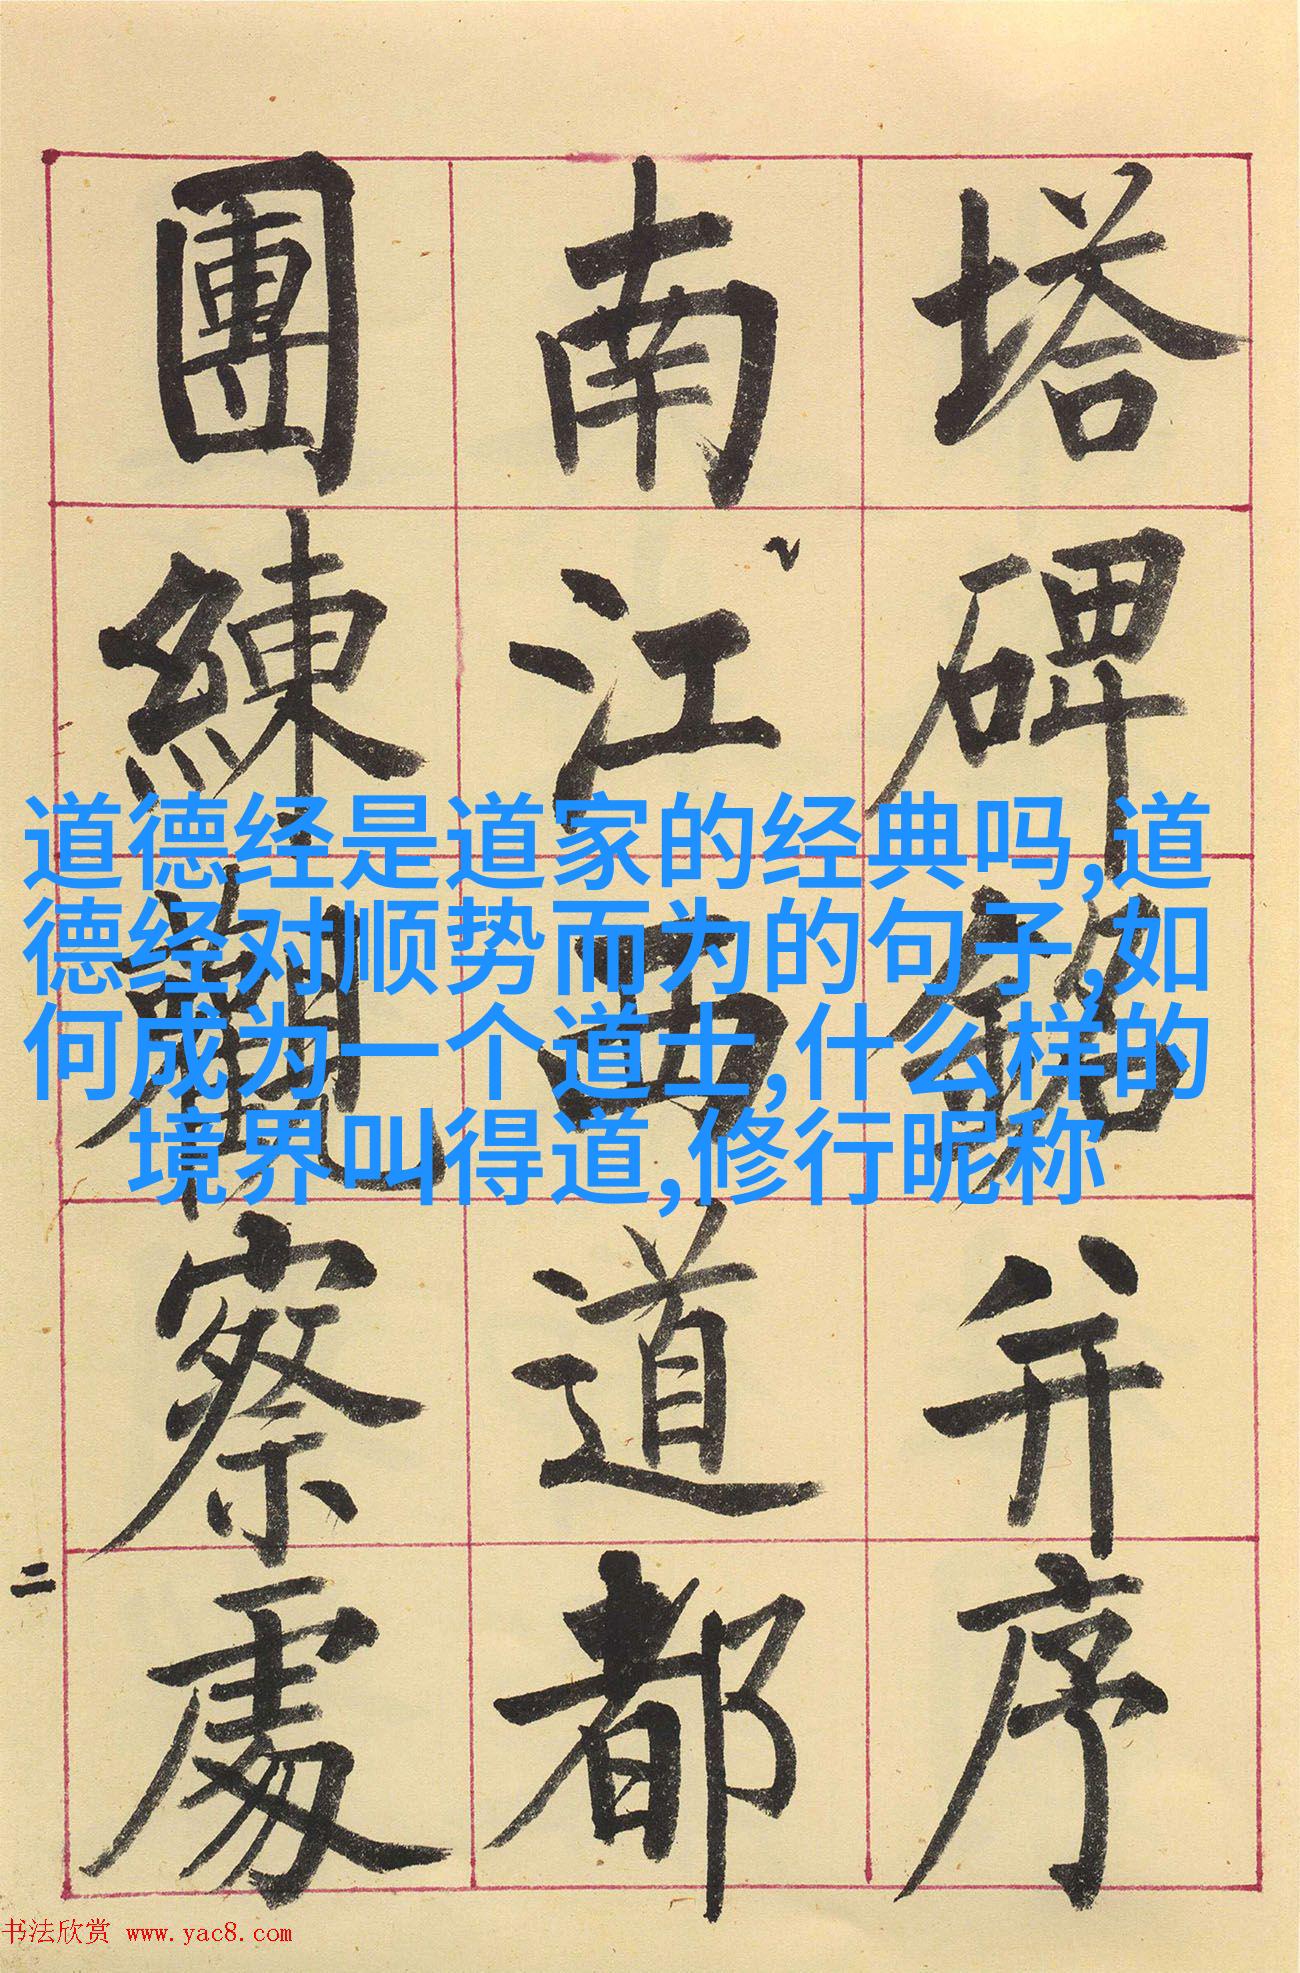 塔碑銘并序
南江西道都
團練觀察處
二
道德经是道家的经典吗,道
德经对顺势而为的句子,如
何成为一个道士,什么样的
境界叫得道,修行昵称
书法欣赏 www.yac8.com